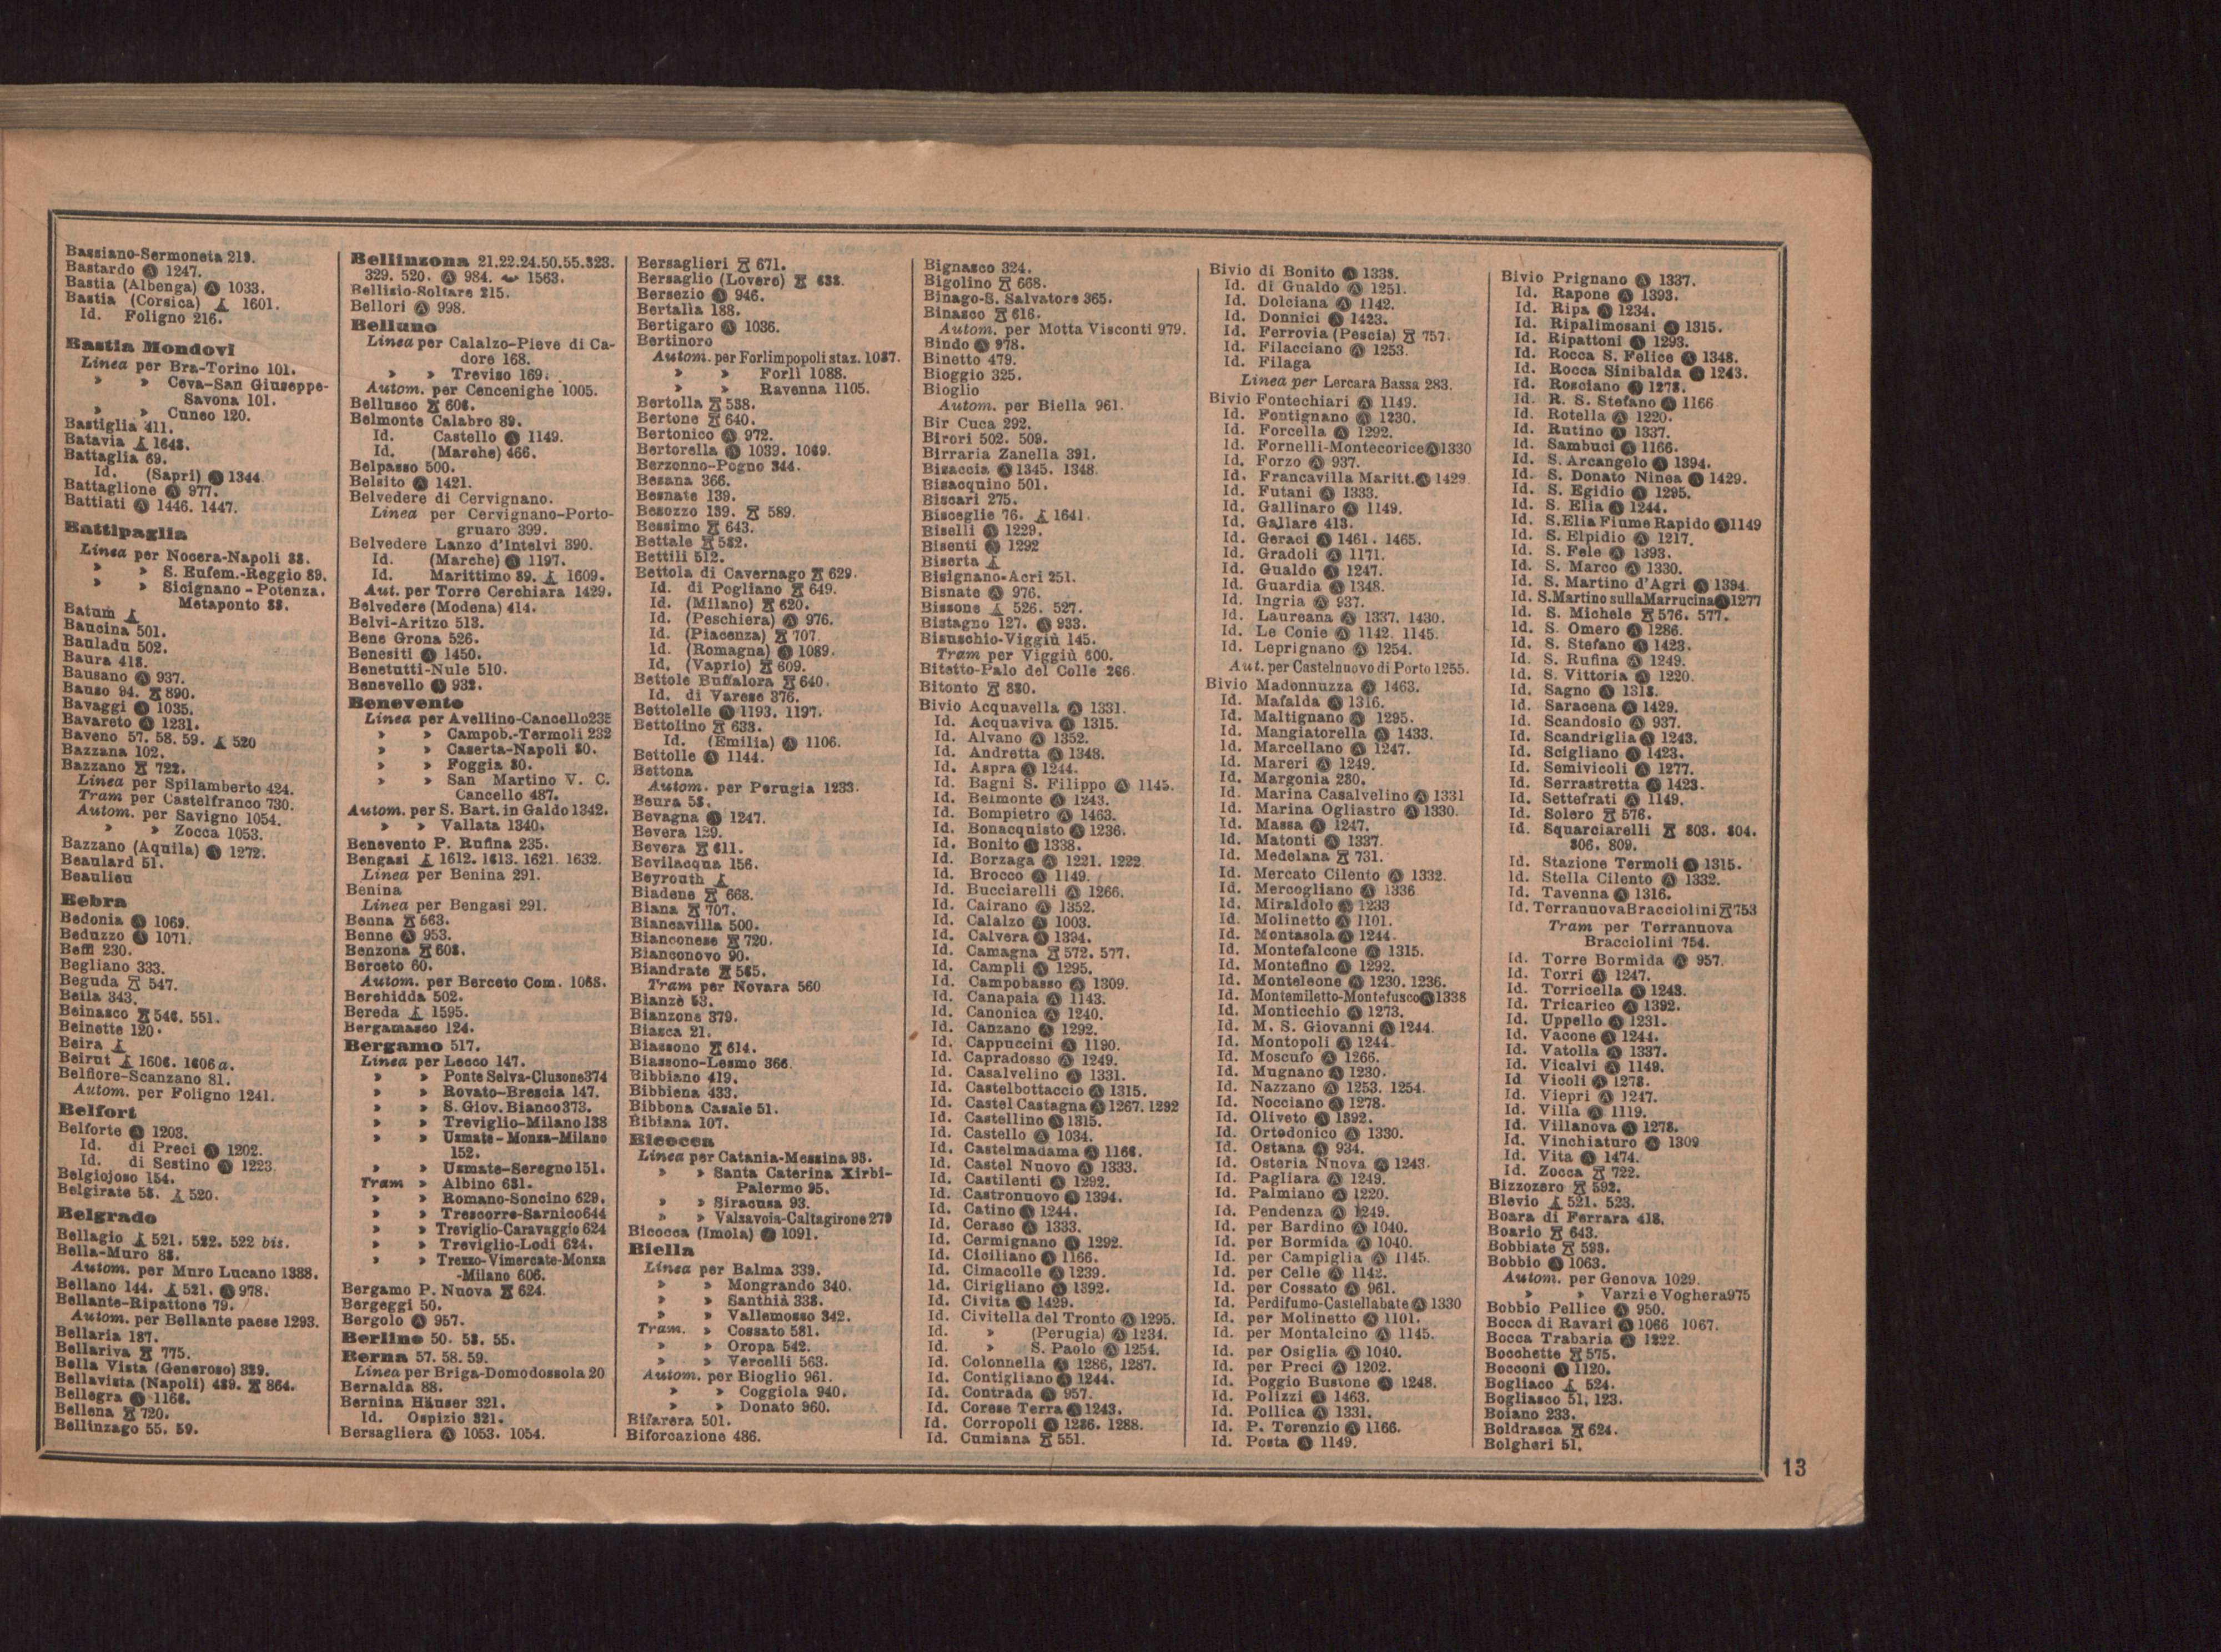 Bassiano-Sermoneta 219.
Bastardo Ⓐ 1247.
Bastia (Albenga) Ⓐ 1033.
Bastia (Corsica) 1601.
Id. Foligno 216.
Bastia Mondovì
Linea per Bra-Torino 101.
» » Ceva-San Giuseppe-
Savona 101.
» » Cuneo 120.
Bastiglia 411.
Batavia 1648.
Battaglia 69.
Id. (Sapri) Ⓐ 1344
Battaglione Ⓐ 977.
Battiati Ⓐ 1446. 1447.
Battipaglia
Linea per Nocera-Napoli 88.
» » S. Eufem.-Reggio 89.
» » Sicignano - Potenza.
Metaponto 88.
Batum
Baucina 501.
Bauladu 502.
Baura 418.
Bausano Ⓐ 937.
Bauso 94. 890.
Bavaggi Ⓐ 1035.
Bavareto Ⓐ 1231.
Baveno 57. 58. 59. 520
Bazzana 102.
Bazzano 722.
Linea per Spilamberto 424.
Tram per Castelfranco 730.
Autom. per Savigno 1054.
» » Zocca 1053.
Bazzano (Aquila) Ⓐ 1272.
Beaulard 51.
Beaulieu
Bebra
Bedonia Ⓐ 1069.
Beduzzo Ⓐ 1071.
Beffi 230.
Begliano 333.
Beguda 547.
Beila 343.
Beinasco 546. 551.
Beinette 120.
Beira
Beirut 1606. 1606 a.
Belfiore-Scanzano 81.
Autom. per Foligno 1241.
Belfort
Belforte Ⓐ 1203.
Id. di Preci Ⓐ 1202.
Id. di Sestino Ⓐ 1223
Belgiojoso 154.
Belgirate 58. 520.
Belgrado
Bellagio 521. 522. 522 bis.
Bella-Muro 88.
Autom. per Muro Lucano 1388.
Bellano 144. 521. Ⓐ 978.
Bellante-Ripattone 79.
Autom. per Bellante paese 1293.
Bellaria 187.
Bellariva 775.
Bella Vista (Generoso) 329.
Bellavista (Napoli) 489. 864.
Bellegra Ⓐ 1166.
Bellena 720.
Bellinzago 55. 59.
Bellinzona 21.22.24.50.55.323.
329. 520. Ⓐ 984. 1563.
Bellisio-Solfare 215.
Bellori Ⓐ 998.
Belluno
Linea per Calalzo-Pieve di Ca-
dore 168.
» » Treviso 169.
Autom. per Cencenighe 1005.
Bellusco 606.
Belmonte Calabro 89.
Id. Castello Ⓐ 1149.
Id. (Marche) 466.
Belpasso 500.
Belsito Ⓐ 1421.
Belvedere di Cervignano.
Linea per Cervignano-Porto-
gruaro 399.
Belvedere Lanzo d'Intelvi 390.
Id. (Marche) Ⓐ 1197.
Id. Marittimo 89. 1609.
Aut. per Torre Cerchiara 1429.
Belvedere (Modena) 414.
Belvì-Aritzo 513.
Bene Grona 526.
Benesiti Ⓐ 1450.
Benetutti-Nule 510.
Benevello Ⓐ 932.
Benevento
Linea per Avellino-Cancello 235
» » Campob.-Termoli 232
» » Caserta-Napoli 80.
» » Foggia 80.
» » San Martino V. C.
Cancello 487.
Autom. per S. Bart. in Galdo 1342.
» » Vallata 1340.
Benevento P. Rufina 235.
Bengasi 1612. 1613. 1621. 1632.
Linea per Benina 291.
Benina
Linea per Bengasi 291.
Benna 563.
Benne Ⓐ 953.
Benzona 608.
Berceto 60.
Autom. per Berceto Com. 1068.
Berchidda 502.
Bereda 1595.
Bergamasco 124.
Bergamo 517.
Linea per Lecco 147.
» » Ponte Selva-Clusone 374
» » Rovato-Brescia 147.
» » S. Giov. Bianco 373.
» » Treviglio-Milano 138
» » Usmate-Monza-Milano
152.
» » Usmate-Seregno 151.
Tram » Albino 631.
» » Romano-Soncino 629.
» » Trescorre-Sarnico 644
» » Treviglio-Caravaggio 624
» » Treviglio-Lodi 624.
» » Trezzo-Vimercate-Monza
-Milano 606.
Bergamo P. Nuova 624.
Bergeggi 50.
Bergolo Ⓐ 957.
Berlino 50. 53. 55.
Berna 57. 58. 59.
Linea per Briga-Domodossola 20
Bernalda 88.
Bernina Häuser 321.
Id. Ospizio 321.
Bersagliera Ⓐ 1053. 1054.
Bersaglieri 671.
Bersaglio (Lovere) 638.
Bersezio Ⓐ 946.
Bertalia 188.
Bertigaro Ⓐ 1036.
Bertinoro
Autom. per Forlimpopoli staz. 1087.
» » Forlì 1088.
» » Ravenna 1105.
Bertolla 538.
Bertone 640.
Bertonico Ⓐ 972.
Bertorella Ⓐ 1039. 1069.
Berzonno-Pogno 344.
Besana 366.
Besnate 139.
Besozzo 139. 589.
Bessimo 643.
Bettale 582.
Bettili 512.
Bettola di Cavernago 629.
Id. di Pogliano 649.
Id. (Milano) 620.
Id. (Peschiera) Ⓐ 976.
Id. (Piacenza) 707.
Id. (Romagna) Ⓐ 1089.
Id. (Vaprio) 609.
Bettole Buffalora 640.
Id. di Varese 376.
Bettolelle Ⓐ 1193. 1197.
Bettolino 633.
Id. (Emilia) Ⓐ 1106.
Bettolle Ⓐ 1144.
Bettona
Autom. per Perugia 1233.
Beura 58.
Bevagna Ⓐ 1247.
Bevera 129.
Bevera 611.
Bevilacqua 156.
Beyrouth
Biadene 668.
Biana 707.
Biancavilla 500.
Bianconese 720.
Bianconovo 90.
Biandrate 565.
Tram per Novara 560
Bianzè 53.
Bianzone 379.
Biasca 21.
Biassono 614.
Biassono-Lesmo 366.
Bibbiano 419.
Bibbiena 433.
Bibbona Casale 51.
Bibiana 107.
Bicocca
Linea per Catania-Messina 93.
» » Santa Caterina Xirbi-
Palermo 95.
» » Siracusa 93.
» » Valsavoia-Caltagirone 279
Bicocca (Imola) Ⓐ 1091.
Biella
Linea per Balma 339.
» » Mongrando 340.
» » Santhià 338.
» » Vallemosso 342.
Tram. » Cossato 581.
» » Oropa 542.
» » Vercelli 563.
Autom. per Bioglio 961.
» » Coggiola 940.
» » Donato 960.
Bifarera 501.
Biforcazione 486.
Bignasco 324.
Bigolino 668.
Binago-S. Salvatore 365.
Binasco 616.
Autom. per Motta Visconti 979.
Bindo Ⓐ 978.
Binetto 479.
Bioggio 325.
Bioglio
Autom. per Biella 961.
Bir Cuca 292.
Birori 502. 509.
Birraria Zanella 391.
Bisaccia Ⓐ 1345. 1348.
Bisacquino 501.
Biscari 275.
Bisceglie 76. 1641.
Biselli Ⓐ 1229.
Bisenti Ⓐ 1292
Biserta
Bisignano-Acri 251.
Bisnate Ⓐ 976.
Bissone 526. 527.
Bistagno 127. Ⓐ 933.
Bisuschio-Viggiù 145.
Tram per Viggiù 600.
Bitetto-Palo del Colle 266.
Bitonto 880.
Bivio Acquavella Ⓐ 1331.
Id. Acquaviva Ⓐ 1315.
Id. Alvano Ⓐ 1352.
Id. Andretta Ⓐ 1348.
Id. Aspra Ⓐ 1244.
Id. Bagni S. Filippo Ⓐ 1145.
Id. Belmonte Ⓐ 1243.
Id. Bompietro Ⓐ 1463.
Id. Bonacquisto Ⓐ 1236.
Id. Bonito Ⓐ 1338.
Id. Borzaga Ⓐ 1221. 1222.
Id. Brocco Ⓐ 1149.
Id. Bucciarelli Ⓐ 1266.
Id. Cairano Ⓐ 1352.
Id. Calalzo Ⓐ 1003.
Id. Calvera Ⓐ 1394.
Id. Camagna 572. 577.
Id. Campli Ⓐ 1295.
Id. Campobasso Ⓐ 1309.
Id. Canapaia Ⓐ 1143.
Id. Canonica Ⓐ 1240.
Id. Canzano Ⓐ 1292.
Id. Cappuccini Ⓐ 1190.
Id. Capradosso Ⓐ 1249.
Id. Casalvelino Ⓐ 1331.
Id. Castelbottaccio Ⓐ 1315.
Id. Castel Castagna Ⓐ 1267. 1292
Id. Castellino Ⓐ 1315.
Id. Castello Ⓐ 1034.
Id. Castelmadama Ⓐ 1166.
Id. Castel Nuovo Ⓐ 1333.
Id. Castilenti Ⓐ 1292.
Id. Castronuovo Ⓐ 1394.
Id. Catino Ⓐ 1244.
Id. Ceraso Ⓐ 1333.
Id. Cermignano Ⓐ 1292.
Id. Ciciliano Ⓐ 1166.
Id. Cimacolle Ⓐ 1239.
Id. Cirigliano Ⓐ 1392.
Id. Civita Ⓐ 1429.
Id. Civitella del Tronto Ⓐ 1295.
Id. » (Perugia) Ⓐ 1234.
Id. » S. Paolo Ⓐ 1254.
Id. Colonnella Ⓐ 1286, 1287.
Id. Contigliano Ⓐ 1244.
Id. Contrada Ⓐ 957.
Id. Corese Terra Ⓐ 1243.
Id. Corropoli Ⓐ 1286. 1288.
Id. Cumiana 551.
Bivio di Bonito Ⓐ 1338.
Id. di Gualdo Ⓐ 1251.
Id. Dolciana Ⓐ 1142.
Id. Donnici Ⓐ 1423.
Id. Ferrovia (Pescia) 757.
Id. Filacciano Ⓐ 1253.
Id. Filaga
Linea per Lercara Bassa 283.
Bivio Fontechiari Ⓐ 1149.
Id. Fontignano Ⓐ 1230.
Id. Forcella Ⓐ 1292.
Id. Fornelli-Montecorice Ⓐ 1330
Id. Forzo Ⓐ 937.
Id. Francavilla Maritt. Ⓐ 1429
Id. Futani Ⓐ 1333.
Id. Gallinaro Ⓐ 1149.
Id. Gallare 413.
Id. Geraci Ⓐ 1461. 1465.
Id. Gradoli Ⓐ 1171.
Id. Gualdo Ⓐ 1247.
Id. Guardia Ⓐ 1348.
Id. Ingria Ⓐ 937.
Id. Laureana Ⓐ 1337. 1430.
Id. Le Conie Ⓐ 1142. 1145.
Id. Leprignano Ⓐ 1254.
Aut. per Castelnuovo di Porto 1255.
Bivio Madonnuzza Ⓐ 1463.
Id. Mafalda Ⓐ 1316.
Id. Maltignano Ⓐ 1295.
Id. Mangiatorella Ⓐ 1433.
Id. Marcellano Ⓐ 1247.
Id. Mareri Ⓐ 1249.
Id. Margonia 280.
Id. Marina Casalvelino Ⓐ 1331
Id. Marina Ogliastro Ⓐ 1330.
Id. Massa Ⓐ 1247.
Id. Matonti Ⓐ 1337.
Id. Medelana 731.
Id. Mercato Cilento Ⓐ 1332.
Id. Mercogliano Ⓐ 1336
Id. Miraldolo Ⓐ 1233
Id. Molinetto Ⓐ 1101.
Id. Montasola Ⓐ 1244.
Id. Montefalcone Ⓐ 1315.
Id. Montefino Ⓐ 1292.
Id. Monteleone Ⓐ 1230. 1236.
Id. Montemiletto-Montefusco Ⓐ 1338
Id. Monticchio Ⓐ 1273.
Id. M. S. Giovanni Ⓐ 1244.
Id. Montopoli Ⓐ 1244.
Id. Moscufo Ⓐ 1266.
Id. Mugnano Ⓐ 1230.
Id. Nazzano Ⓐ 1253. 1254.
Id. Nocciano Ⓐ 1278.
Id. Oliveto Ⓐ 1392.
Id. Ortodonico Ⓐ 1330.
Id. Ostana Ⓐ 934.
Id. Osteria Nuova Ⓐ 1243.
Id. Pagliara Ⓐ 1249.
Id. Palmiano Ⓐ 1220.
Id. Pendenza Ⓐ 1249.
Id. per Bardino Ⓐ 1040.
Id. per Bormida Ⓐ 1040.
Id. per Campiglia Ⓐ 1145.
Id. per Celle Ⓐ 1142.
Id. per Cossato Ⓐ 961.
Id. Perdifumo-Castellabate Ⓐ 1330
Id. per Molinetto Ⓐ 1101.
Id. per Montalcino Ⓐ 1145.
Id. per Osiglia Ⓐ 1040.
Id. per Preci Ⓐ 1202.
Id. Poggio Bustone Ⓐ 1248.
Id. Polizzi Ⓐ 1463.
Id. Pollica Ⓐ 1331.
Id. P. Terenzio Ⓐ 1166.
Id. Posta Ⓐ 1149.
Bivio Prignano Ⓐ 1337.
Id. Rapone Ⓐ 1393.
Id. Ripa Ⓐ 1234.
Id. Ripalimosani Ⓐ 1315.
Id. Ripattoni Ⓐ 1293.
Id. Rocca S. Felice Ⓐ 1348.
Id. Rocca Sinibalda Ⓐ 1243.
Id. Rosciano Ⓐ 1278.
Id. R. S. Stefano Ⓐ 1166
Id. Rotella Ⓐ 1220.
Id. Rutino Ⓐ 1337.
Id. Sambuci Ⓐ 1166.
Id. S. Arcangelo Ⓐ 1394.
Id. S. Donato Ninea Ⓐ 1429.
Id. S. Egidio Ⓐ 1295.
Id. S. Elia Ⓐ 1244.
Id. S. Elia Fiume Rapido Ⓐ 1149
Id. S. Elpidio Ⓐ 1217.
Id. S. Fele Ⓐ 1393.
Id. S. Marco Ⓐ 1330.
Id. S. Martino d'Agri Ⓐ 1394.
Id. S. Martino sulla Marrucina Ⓐ 1277
Id. S. Michele 576. 577.
Id. S. Omero Ⓐ 1286.
Id. S. Stefano Ⓐ 1423.
Id. S. Rufina Ⓐ 1249.
Id. S. Vittoria Ⓐ 1220.
Id. Sagno Ⓐ 1318.
Id. Saracena Ⓐ 1429.
Id. Scandosio Ⓐ 937.
Id. Scandriglia Ⓐ 1243.
Id. Scigliano Ⓐ 1423.
Id. Semivicoli Ⓐ 1277.
Id. Serrastretta Ⓐ 1423.
Id. Settefrati Ⓐ 1149.
Id. Solero 576.
Id. Squarciarelli 803. 804.
806. 809.
Id. Stazione Termoli Ⓐ 1315.
Id. Stella Cilento Ⓐ 1332.
Id. Tavenna Ⓐ 1316.
Id. Terranuova Bracciolini 753
Tram per Terranuova
Bracciolini 754.
Id. Torre Bormida Ⓐ 957.
Id. Torri Ⓐ 1247.
Id. Torricella Ⓐ 1243.
Id. Tricarico Ⓐ 1392.
Id. Uppello Ⓐ 1231.
Id. Vacone Ⓐ 1244.
Id. Vatolla Ⓐ 1337.
Id. Vicalvi Ⓐ 1149.
Id. Vicoli Ⓐ 1278.
Id. Viepri Ⓐ 1247.
Id. Villa Ⓐ 1119.
Id. Villanova Ⓐ 1278.
Id. Vinchiaturo Ⓐ 1309
Id. Vita Ⓐ 1474.
Id. Zocca 722.
Bizzozero 592.
Blevio 521. 523.
Boara di Ferrara 418.
Boario 643.
Bobbiate 593.
Bobbio Ⓐ 1063.
Autom. per Genova 1029.
» » Varzi e Voghera 975
Bobbio Pellice Ⓐ 950.
Bocca di Ravari Ⓐ 1066 1067.
Bocca Trabaria Ⓐ 1222.
Bocchette 575.
Bocconi Ⓐ 1120.
Bogliaco 524.
Bogliasco 51, 123.
Boiano 233.
Boldrasca 624.
Bolgheri 51.
13